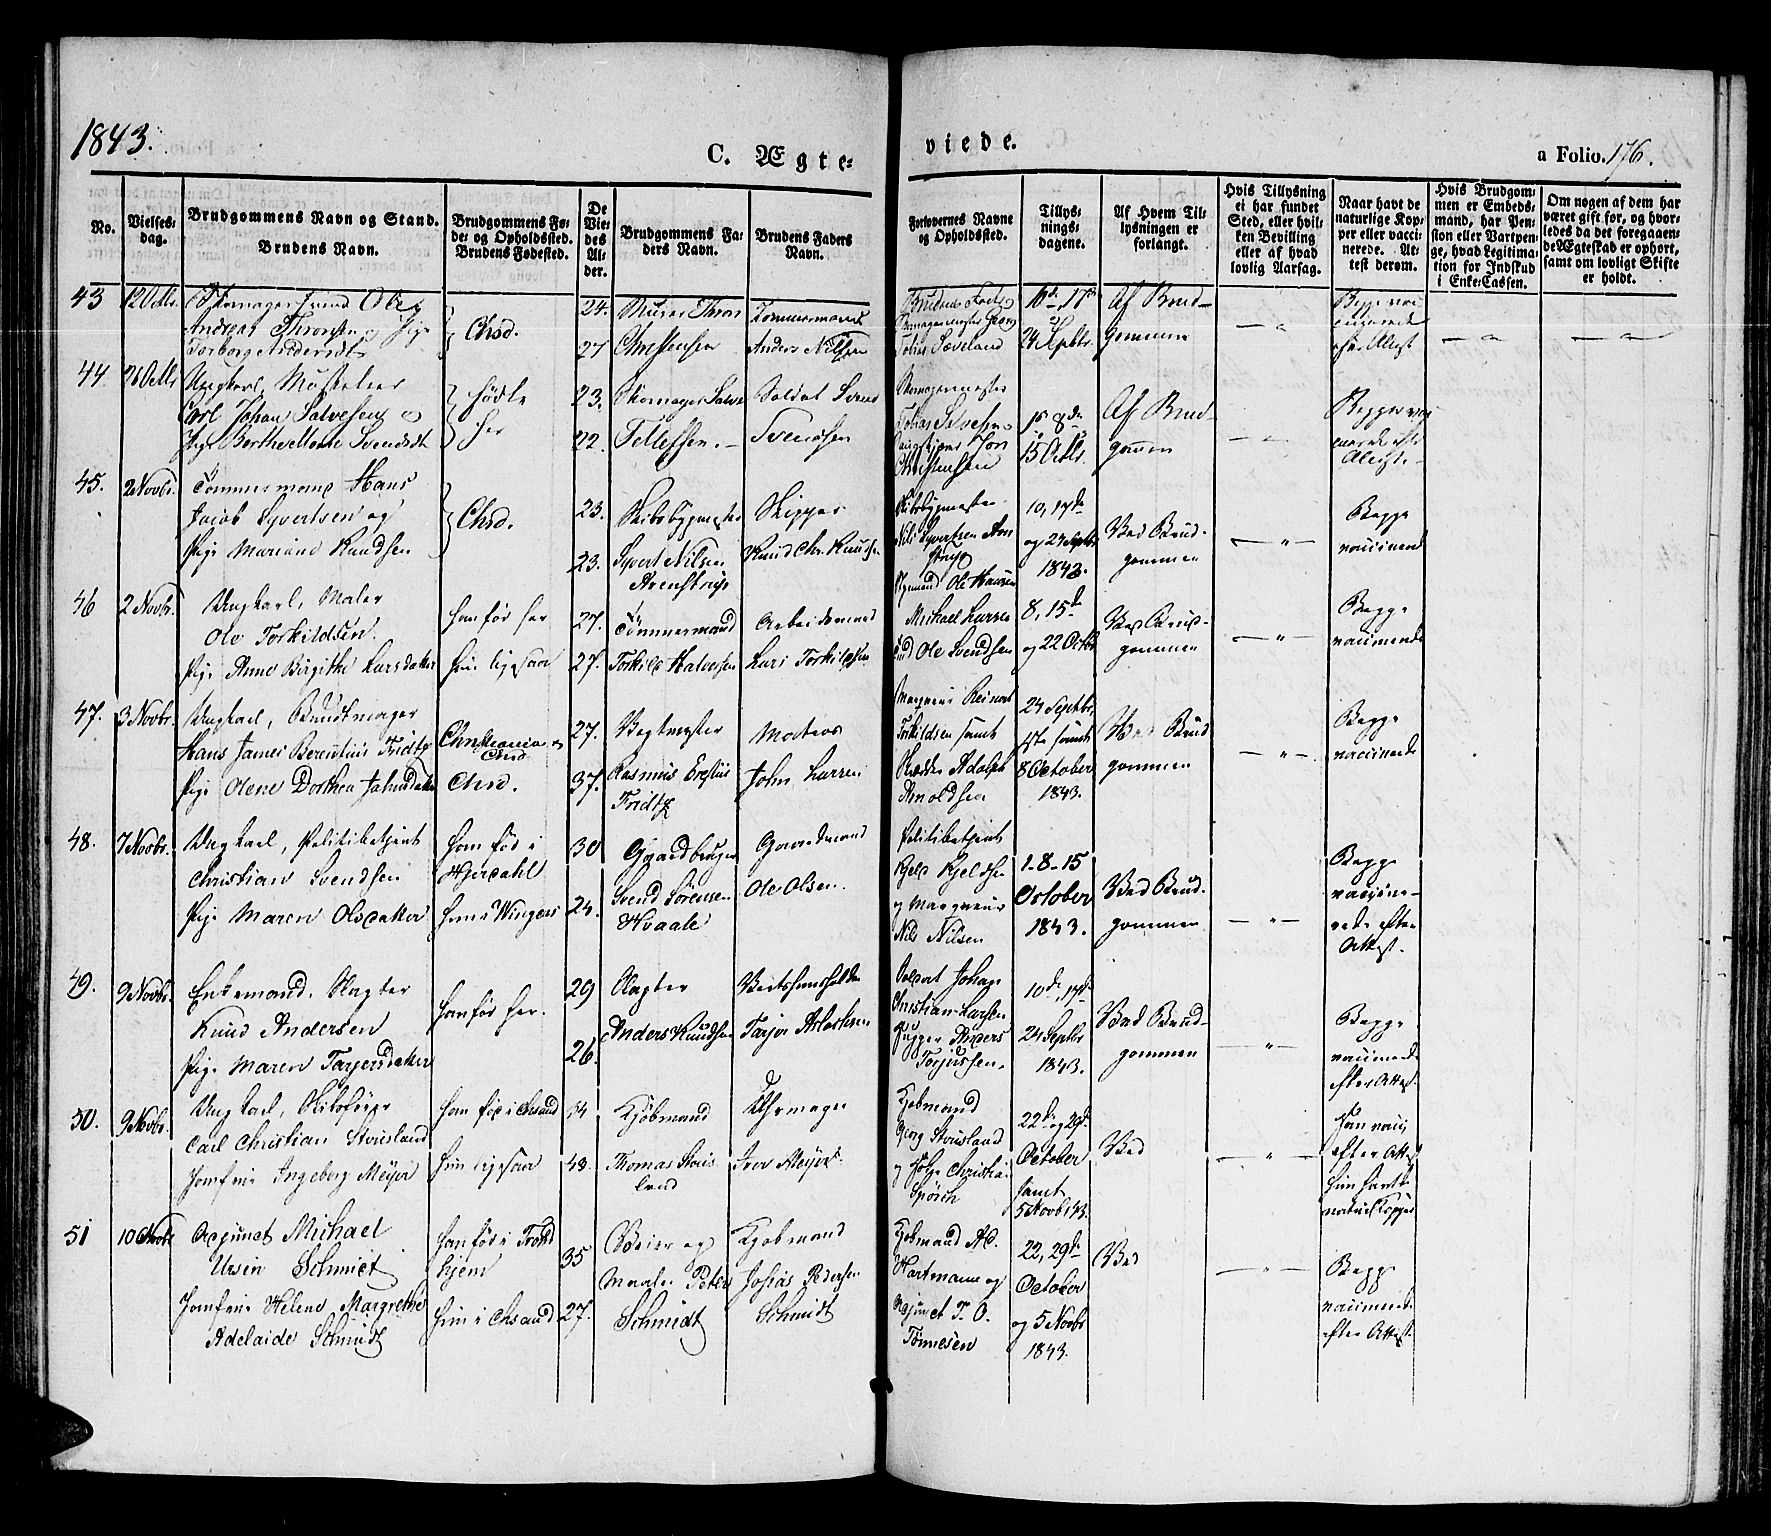 1843.
C. Ægte-
viede.
a Folio. 176.
No.
Vielses-
dag.
Brudgommens Navn og Stand.
Brudens Navn.
Brudgommens Fø-
de- og Opholdssted.
Brudens Fødested.
De
Vie-
des
Al-
der.
Brudgommens Fa-
ders Navn.
Brudens Faders
Navn.
Forlovernes Navne
og Opholdssted.
Tillys-
nings-
dagene.
Af Hvem Til-
lysningen er
forlangt.
Hvis Tillysning
ei har fundet
Sted, eller hvil-
ken Bevilling
eller af hvad
lovlig Aarsag.
Naar havt de
naturlige Kop-
per eller vacci-
nerede. At-
test derom.
Hvis Brudgom-
men er Embeds-
mand, har Pen-
sion eller Vartpen-
ge, hvad Legitima-
tion for Indskud
i Enke-Cassen.
Om nogen af dem har
været gift før, og hvor-
ledes da det foregaaen-
de Ægteskab er ophørt,
samt om lovligt Skifte
er holdt.
43 12 Octbr. Skomagersvend Ole
Andreas Thorsen og Pige
Torborg Andersdt
Chsd.
24.
27
Thor
Christensen
Tømmermand
Anders Nilsen
Tobias Søveland
24 Septbr.
Af Brud-
gommen
Begge vac-
cinerede
efter Attest
44. 26 Octbr. Ungkarl,
Carl Johan Salvesen og
Pige Berthe Marie Svendsdt
fødte
her
23.
22.
Skomager Salve
Tellefsen.
Soldat Svend
Svendsen
Skomagermester
Tobias Salvesen
Jon
Christensen
1ste 8de
15 Octbr.
Af Brud-
gommen
Begge vac-
cinerede efter
Attest.
45. 2 Novbr. Tømmermand Hans
Jacob Syvertsen og
Pige Mariane Knudsen
Chsd.
23.
23.
Skibsbygmester
Syvert Nilsen
Arenstrup
Skipper
Knud Chr. Knudsen
Skibsbygmester
Nils Syvertsen Aren
strup
Ole Hansen
10, 17de
og 24 Septbr.
1843.
Ved Brud-
gommen
Begge
vaccinerede
46 2 Novbr. Ungkarl, Maler
Ole Torkildsen.
Pige Anne Birgithe Larsdatter
han før her
hun ligesaa
27.
27.
Tømmermand
Torkild Halvorsen
Arbeidsmand
Lars Torkildsen
Michael Larsen
Ole Svendsen
8, 15de
og 22 Octbr.
Ved Brud-
gommen
Begge
vaccinerede
47. 3 Novbr. Ungkarl, Buntmager
Hans James Berentius Fridtz
Pige Olene Dorthea Johnsdatter
Christiania og
Chsd
Chsd.
27.
37.
Vegtmester
Rasmus Erestius
Fridtz
Matros
John Larsen
Reinert
Torkildsen samt
Skrædder Adolph
Arnoldsen
24 Septbr.
1ste samt
8 October
1843.
Ved Brud
gommen
Begge
vaccinerede
48. 7 Novbr. Ungkarl, Politibetjent
Christian Svendsen
Pige Maren Olsdatter
han fød i
Hjerdahl
hun i Wingers
30
24.
Gaardbruger
Svend Sørensen
Hvaale
Gaardmand
Ole Olsen.
Politibetjent
Kjeld Kjeldsen
og
Nils Nilsen
1-8-15
October
1843.
Ved Brud-
gommen
Begge
vaccine-
rede efter
Attest.
49. 9 Novbr. Enkemand, Slagter
Knud Andersen
Pige Maren Tarjersdatter
han før her.
29
26.
Slagter
Anders Knudsen
Vertshuusholder
Tarjer Aslaksen
Soldat Johan
Christian Larsen
Anders
Torjussen.
10de, 17de
24 Septbr
1843.
Ved Brud-
gommen
Begge
vaccinerede
efter Attest.
50. 9 Novbr. Ungkarl, Skibsfører
Carl Christian Strusland
Jomfrue Ingeborg Meyer
han fød i Chsand
hun ligesaa
34
43.
Kjøbmand
Thomas Strus
land
Uhrmager
Iver Meyer.
Kjøbmand
Georg Strusland
og Christian
Spørck
22de og 29de
October
samt
5 Novb 1843.
Ved
Han vacc.
efter Attest
hun havt de
naturl. Kopper
51 10 Novbr Adjunct Michael
Ursin Schmidt
Jomfrue Helene Margrethe
Adelaide Schmidt
han fød i Trond
hjem
hun i Chsand
35
27.
Veier og
Maaler Peter
Schmidt
Kjøbmand
Josias Pedersen
Schmidt
Kjøbmand
Hartmann og
Adjunct T. O.
Tønnesen
22, 29de
October
og 5 Novbr
1843.
Ved
Begge
vaccinerede
efter Attest.